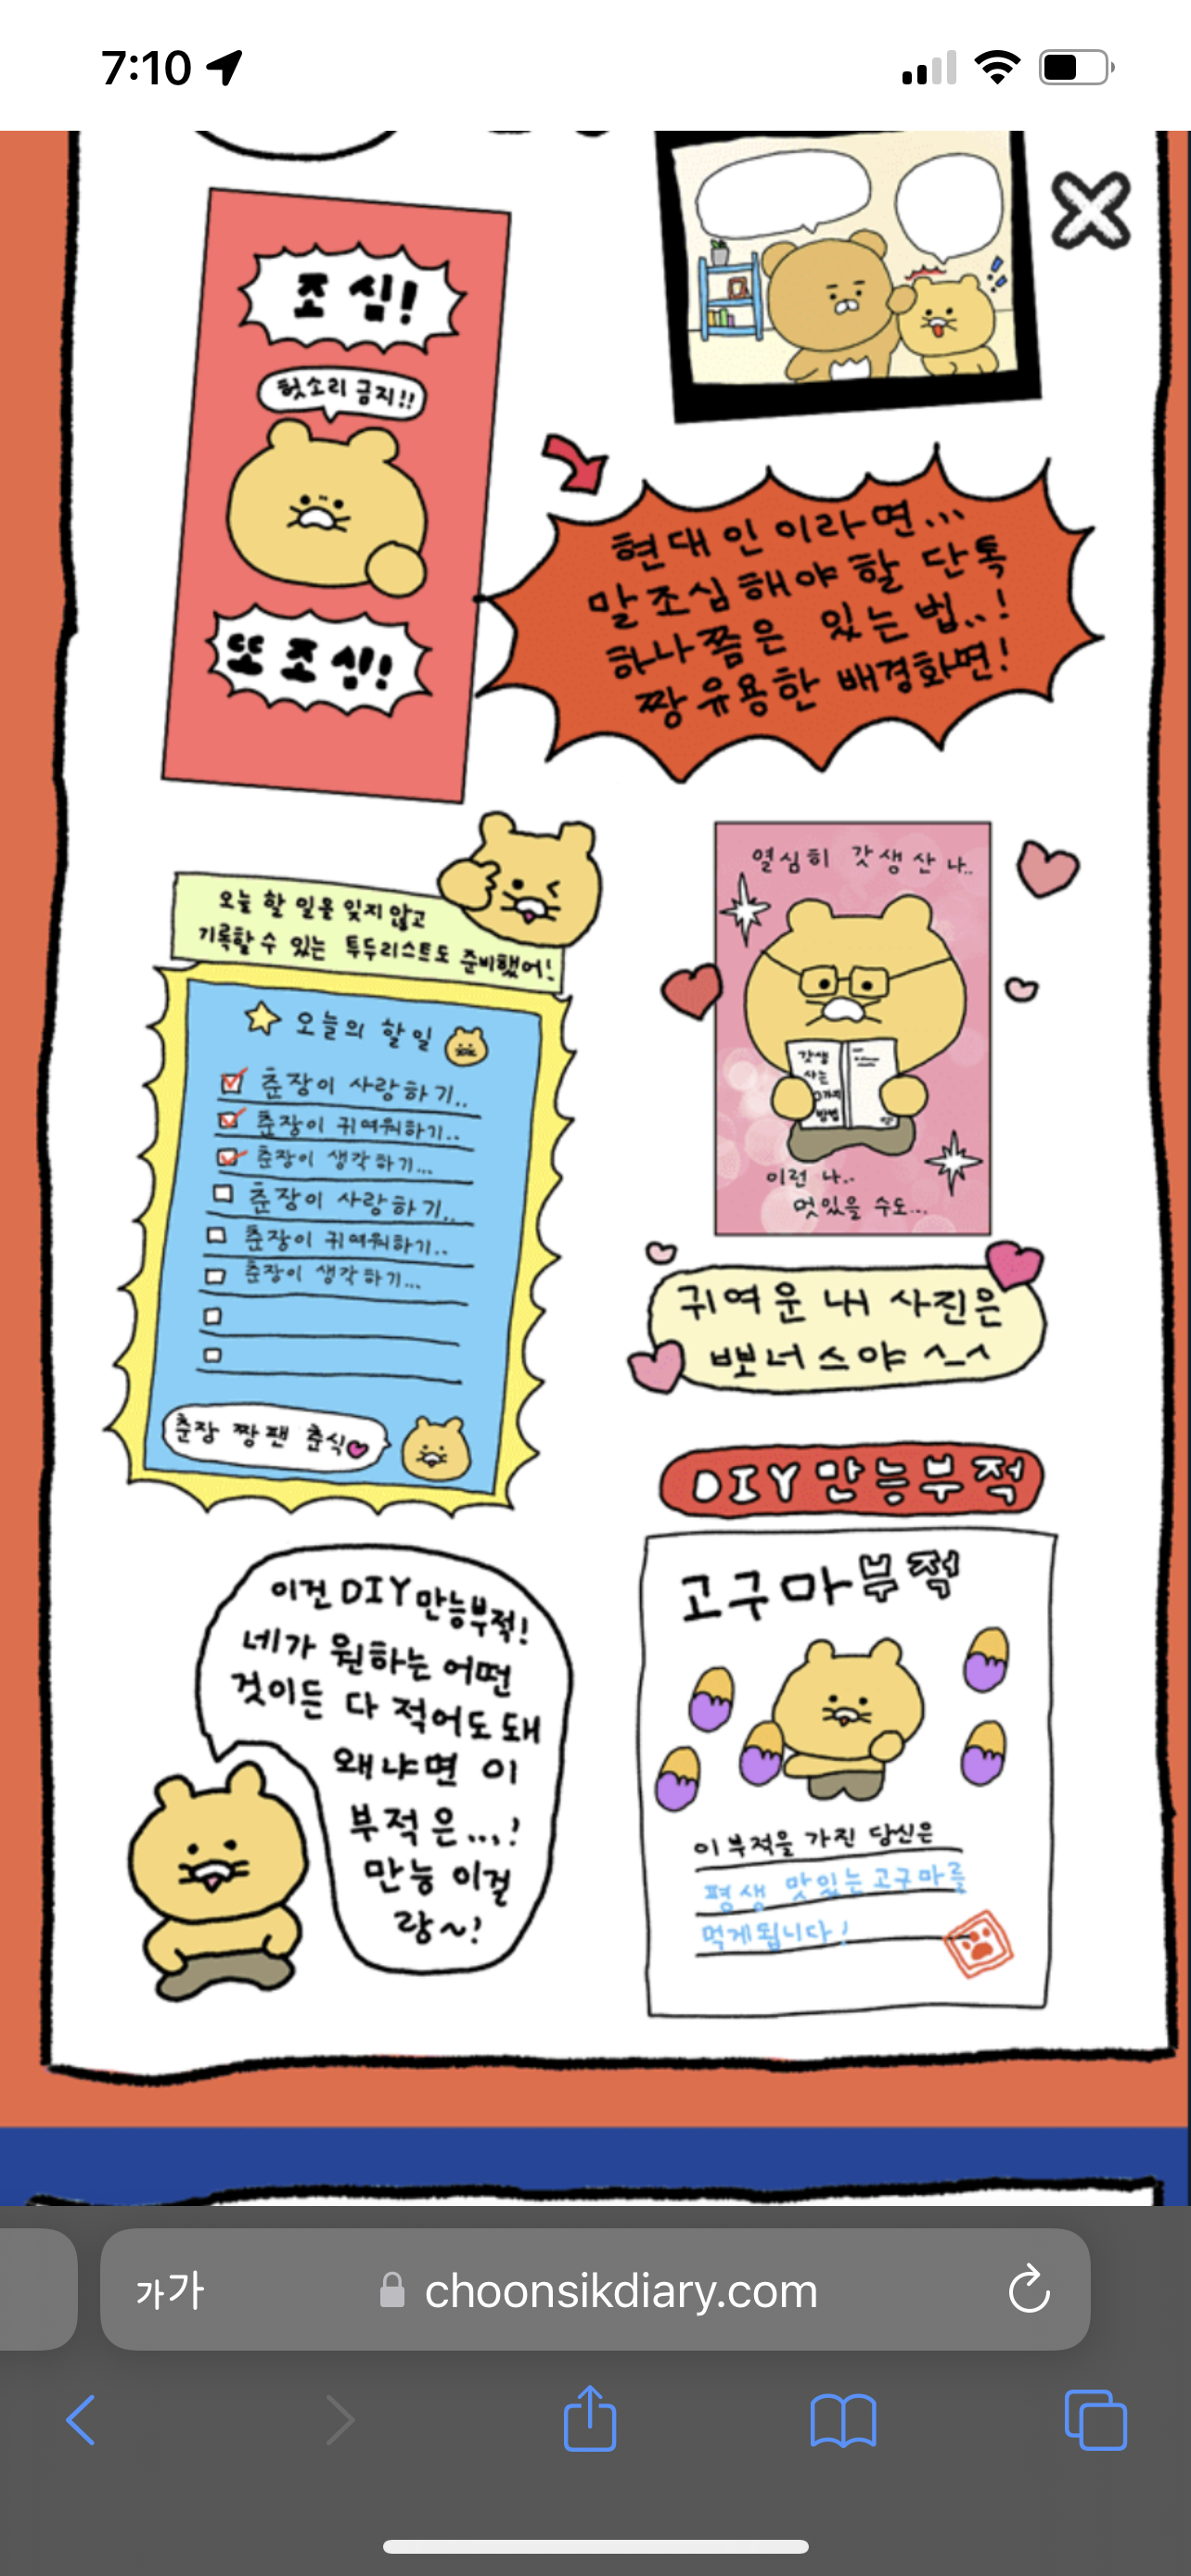 7:10
조심!
헛소리 금지!!
또 조심!
현대인이라면...
말조심해야 할 단톡
하나쯤은 있는 법..!
짱유용한 배경화면!
오늘 할 일을 잊지 않고
기록할 수 있는 투두리스트도 준비했어!
오늘의 할 일
춘장이 사랑하기..
춘장이 귀여워하기..
춘장이 생각하기...
춘장이 사랑하기..
춘장이 귀여워하기..
춘장이 생각하기...
춘장 짱팬 춘식
열심히 갓생 산 나..
갓생
사는
방법
이런 나..
멋있을 수도...
귀여운 내 사진은
뽀너스야 ^_^
이건 DIY 만능부적!
네가 원하는 어떤
것이든 다 적어도 돼
왜냐면 이
부적은...!
만능 이걸
랑~!
DIY 만능부적
고구마부적
이 부적을 가진 당신은
평생 맛있는 고구마를
먹게됩니다!
가가
choonsikdiary.com